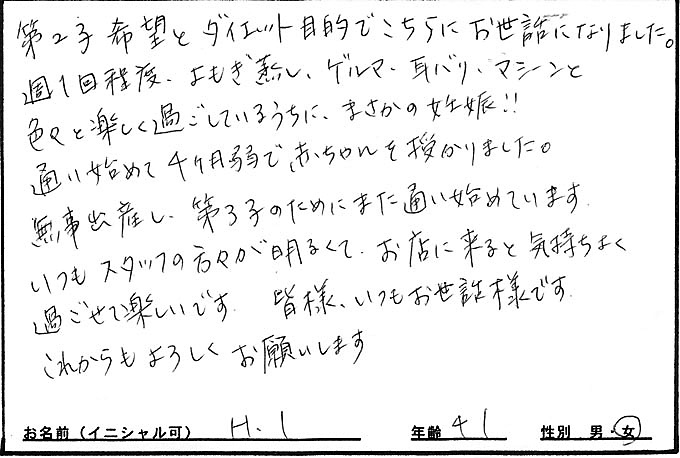 第2子希望とダイエット目的でこちらにお世話になりました。
週1回程度、よもぎ蒸し、ゲルマ、耳バリ、マシーンと
色々と楽しく過ごしているうちに、まさかの妊娠!!
通い始めて4ヶ月弱で、赤ちゃんを授かりました。
無事出産し、第3子のためにまた通い始めています。
いつもスタッフの方々が明るくて、お店に来ると気持ちよく
過ごせて楽しいです。皆様、いつもお世話様です。
これからもよろしくお願いします
お名前(イニシャル可) H.I 年齢 41 性別 男・女